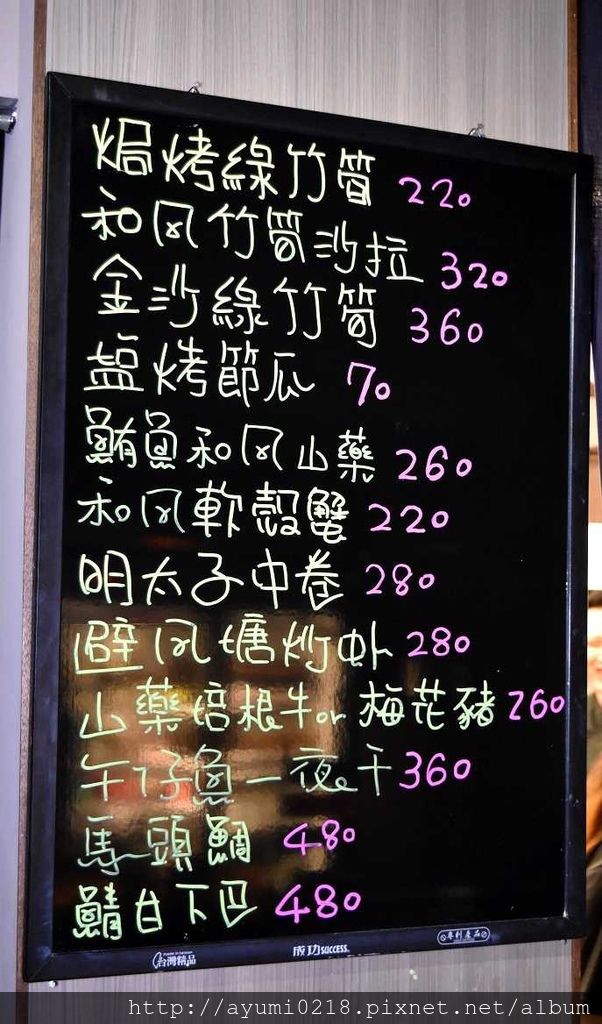 焗烤綠竹筍 220
和风竹筍沙拉 320
金沙綠竹筍 360
塩烤節瓜 70
鮪魚和风山藥 260
和风軟殼蟹 220
明太子中卷 280
避风塘炒虾 280
山藥培根牛or梅花豬 260
午仔魚一夜干 360
馬頭鯛 480
鯖甘下巴 480
台灣精品
成功 SUCCESS
專利產品
http://ayumi0218.pixnet.net/album